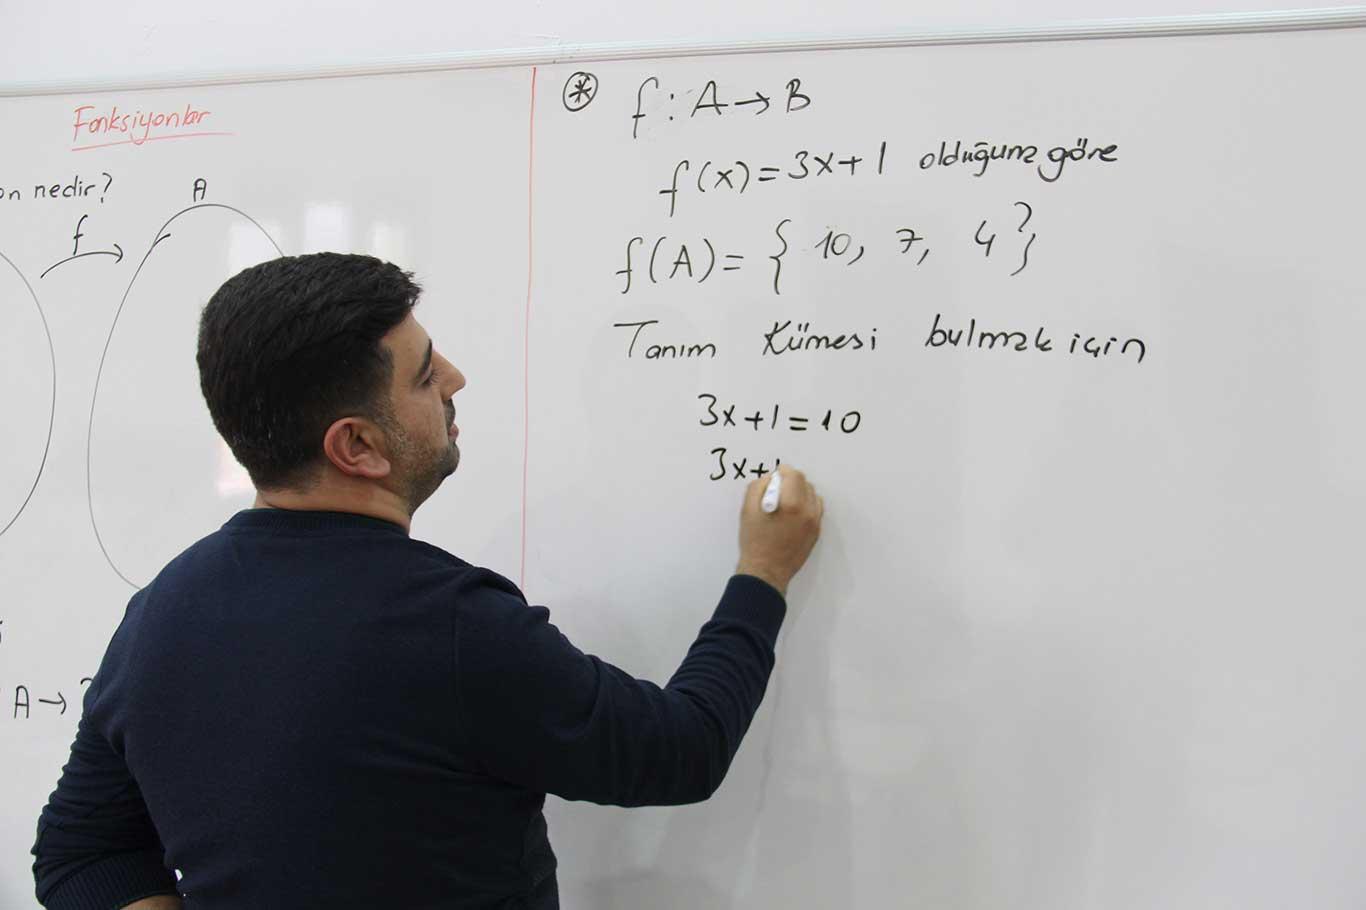 Fonksiyonlar
nedir?
f
A
A →
⊛ f : A → B
f(x) = 3x + 1 olduğuna göre
f(A) = { 10, 7, 4 }
Tanım Kümesi bulmak için
3x + 1 = 10
3x + 1